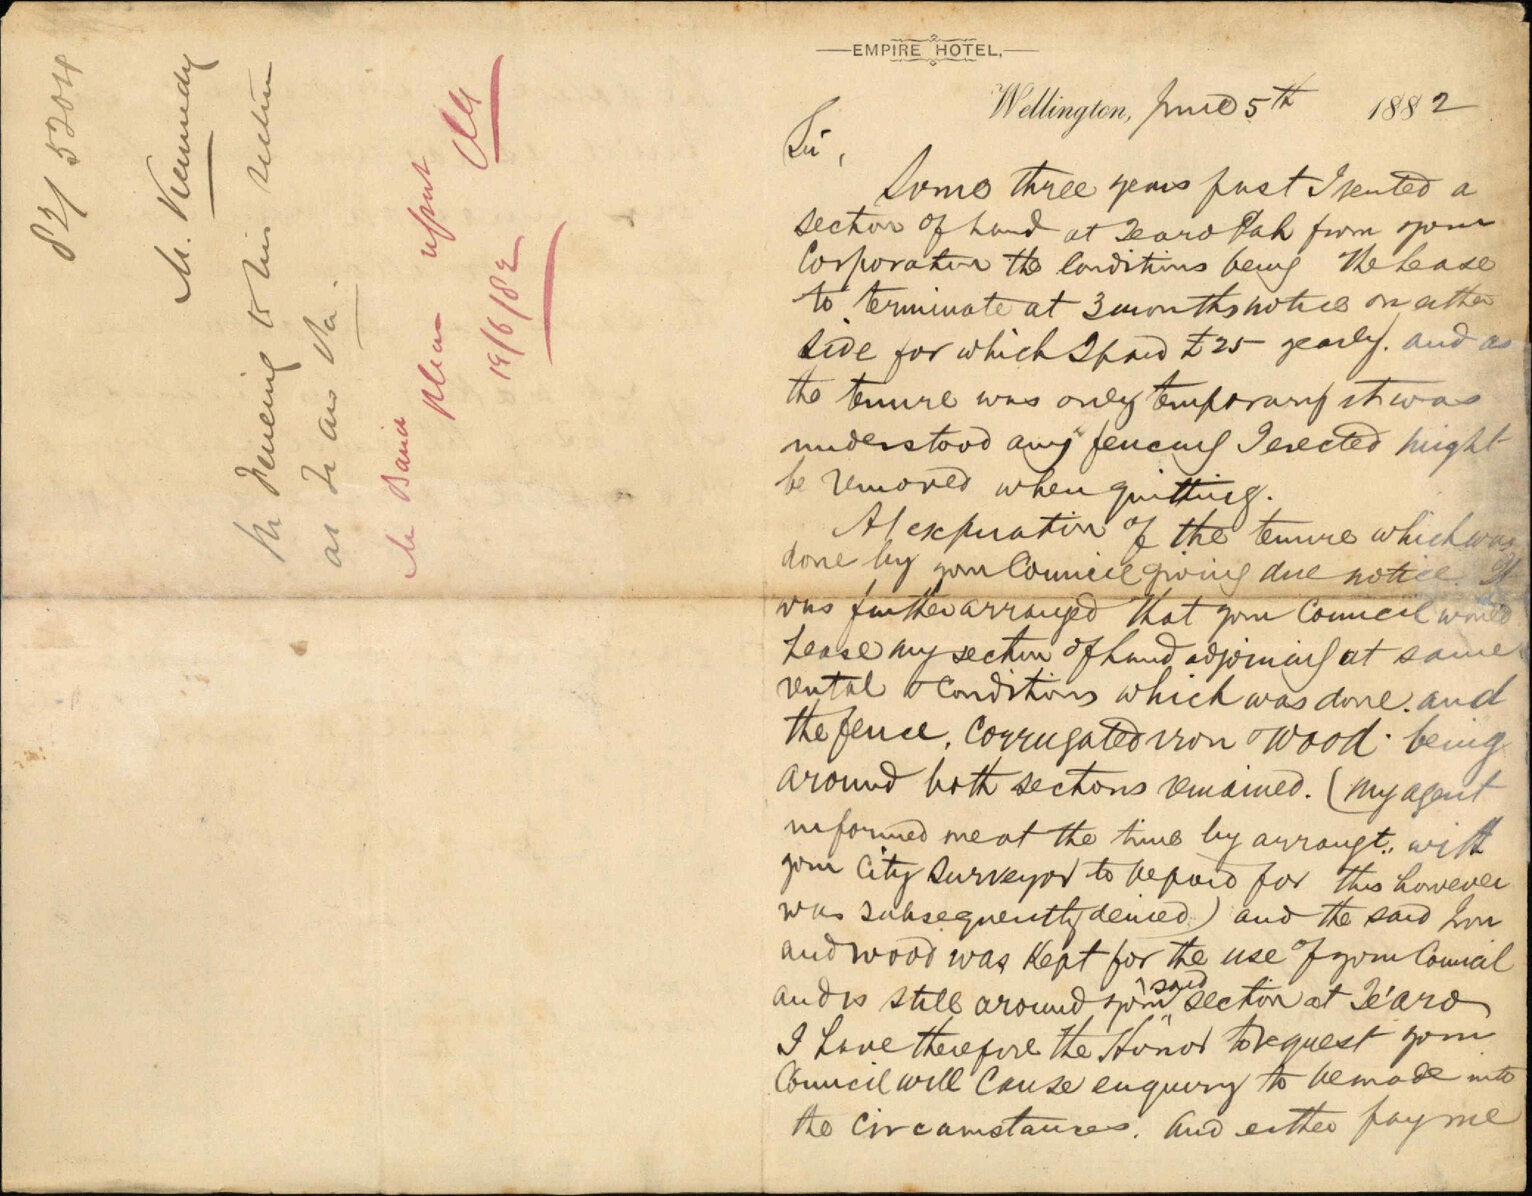 82/ 5204
Mr. Kennedy
re Fencing to his section
at Te Aro Pa.
Mr Baird
please report
19/6/82
EMPIRE HOTEL,
Wellington, June 5th 1882
Sir,
Some three years past I rented a
section of Land at Te aro Pah from your
Corporation the Conditions being the Lease
to terminate at 3 months notice on either
side for which I paid £25 yearly. and as
the tenure was only temporary it was
understood any fencing I erected might
be removed when quitting.
At expiration of the tenure which was
done by your Council giving due notice. It
was further arranged that your Council would
Lease my section of Land adjoining at same
rental & Conditions which was done. and
the fence, Corrugated iron & wood. being
around both sections remained. (My agent
informed me at the time by arrangt. with
your City Surveyor to be paid for this however
was subsequently denied) and the said Iron
and wood was Kept for the use of your Council
and is still around your said section at Te aro
I have therefore the Honor to request your
Council will Cause enquiry to be made into
the Circumstances. And either pay me